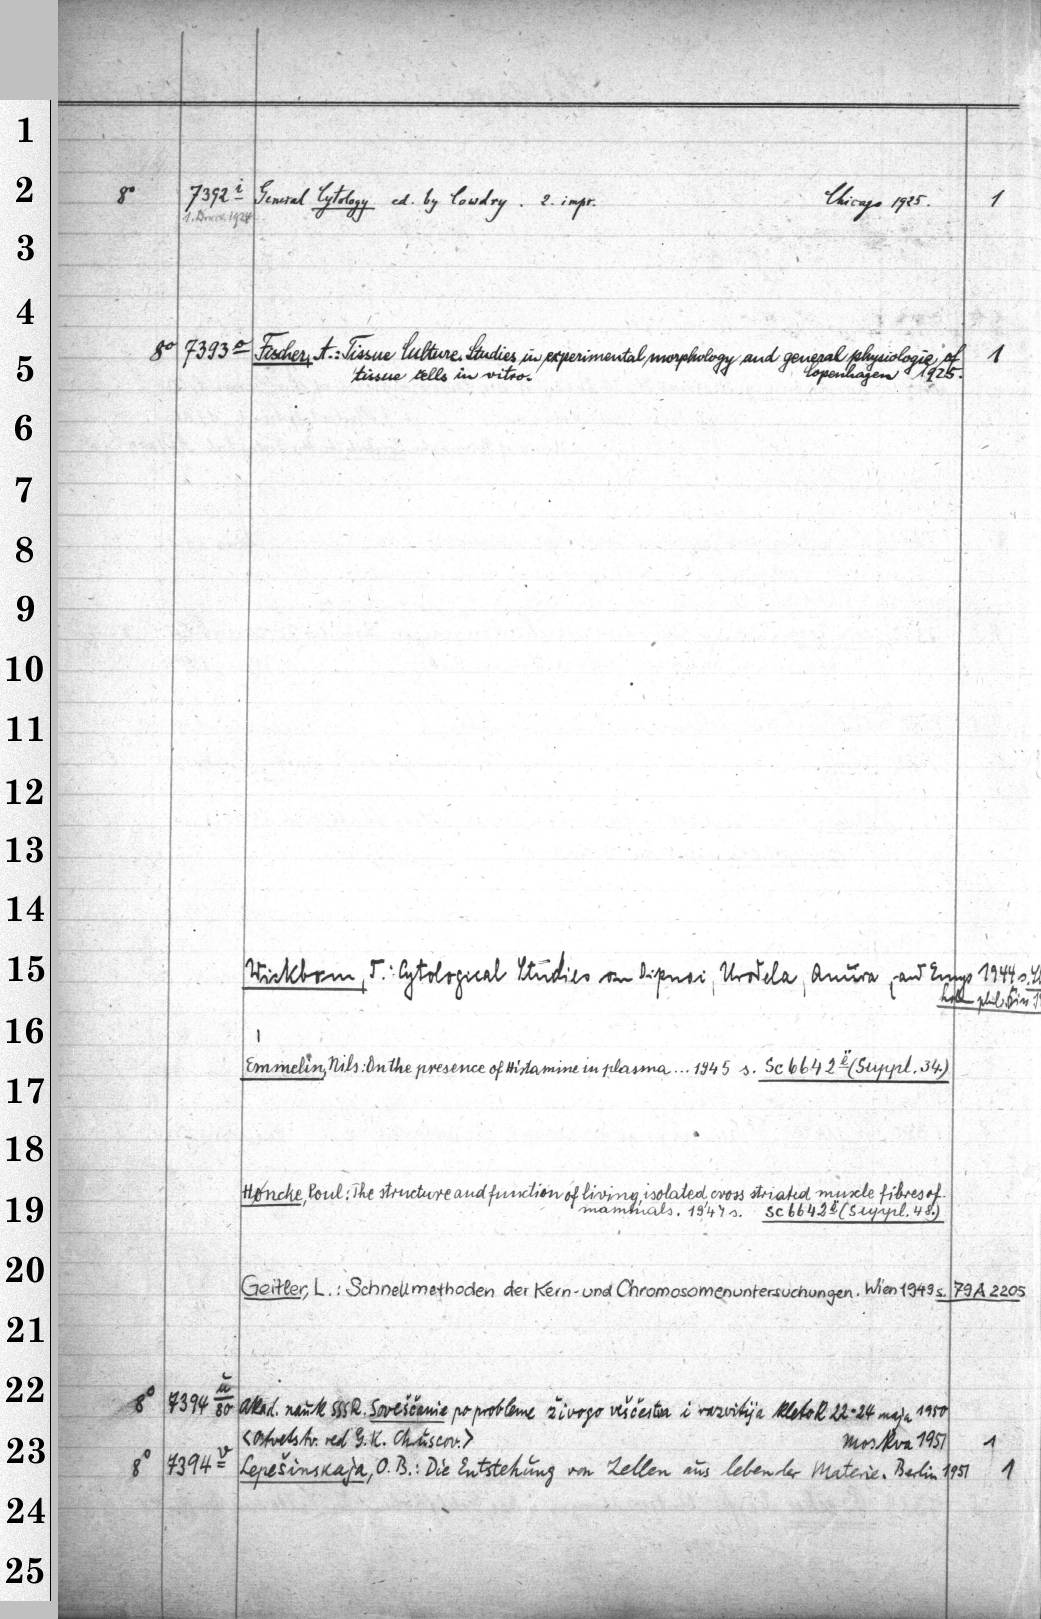 1
2
8° 7392 i General Cytology ed. by Cowdry. 2. impr. Chicago 1925. 1
1924
3
4
5
8° 7393 o Fischer, A.: Tissue Culture. Studies in experimental morphology and general physiologie of 1
tissue cells in vitro. Copenhagen 1925.
6
7
8
9
10
11
12
13
14
15
Wickbom, T.: Cytological Studies on Dipnoi, Urodela, Anura, and Emys 1944 s.
phil.
16
Emmelin, Nils: On the presence of Histamine in plasma... 1945 s. Sc 6642 ü (Suppl. 34.)
17
18
Høncke, Poul: The structure and function of living, isolated, cross striated muscle fibres of
19
mammals. 1947 s. Sc 6642 ü (Suppl. 48.)
20
Geitler, L.: Schnellmethoden der Kern- und Chromosomenuntersuchungen. Wien 1949 s. 79 A 2205
21
22
8° 7394 u/80 Akad. nauk SSSR. Soveščanie po probleme živogo veščestva i razvitija kletok 22-24 maja 1950
<Otvetstv. red G. K. Chuščov.> Moskva 1951 1
23
8° 7394 v Lepešinskaja, O. B.: Die Entstehung von Zellen aus lebender Materie. Berlin 1951 1
24
25